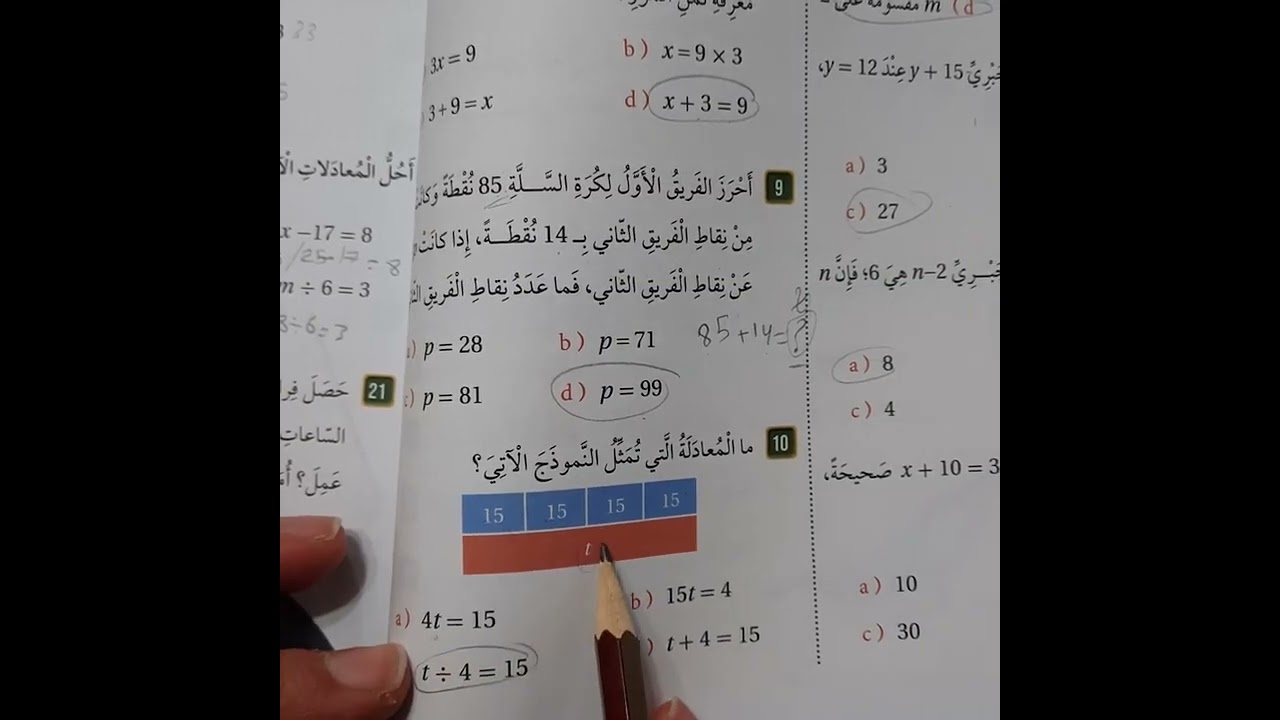 m مقسومة على
d)
y + 15 عِنْدَ y = 12،
a) 3
c) 27
n–2 هِيَ 6؛ فَإِنَّ n
a) 8
c) 4
x + 10 = 3 صَحيحَةً،
a) 10
c) 30
3x = 9
b) x = 9 × 3
3 + 9 = x
d) x + 3 = 9
9 أَحْرَزَ الفَريقُ الْأَوَّلُ لِكُرَةِ السَّلَّةِ 85 نُقْطَةً
مِنْ نِقاطِ الْفَريقِ الثّاني بِـ 14 نُقْطَةً، إِذا كانَتْ
عَنْ نِقاطِ الْفَريقِ الثّاني، فَما عَدَدُ نِقاطِ الْفَريقِ
p = 28
b) p = 71
85 + 14 = ?
p = 81
d) p = 99
10 ما الْمُعادَلَةُ الَّتي تُمَثِّلُ النَّموذَجَ الْآتِيَ؟
15 15 15 15
t
a) 4t = 15
b) 15t = 4
t ÷ 4 = 15
t + 4 = 15
أَحُلُّ الْمُعادَلاتِ
x – 17 = 8
25 - 17 = 8
m ÷ 6 = 3
8 ÷ 6 = 3
21 حَصَلَ
السّاعاتِ
عَمِلَ؟